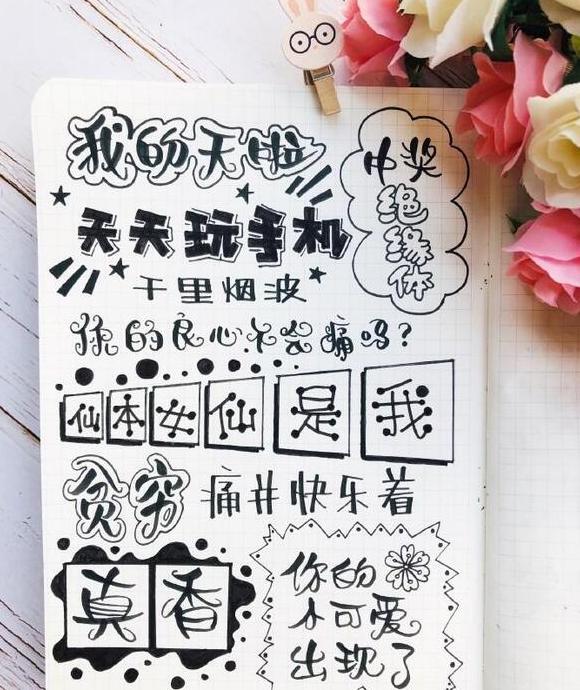 我的天啦
中奖
绝
缘
体
天天玩手机
千里烟波
你的良心不会痛吗?
仙本女仙是我
贫穷 痛并快乐着
真香
你的
小可爱
出现了